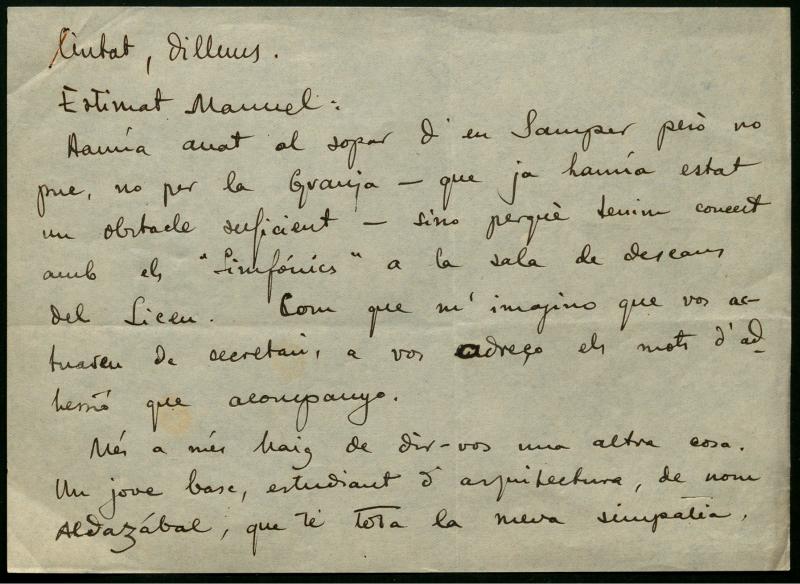 Ciutat, dilluns.
Estimat Manuel:
Hauría anat al sopar d'en Samper però no
puc, no per la Granja — que ja hauría estat
un obstacle suficient — sino perquè tenim concert
amb els "Simfónics" a la sala de descans
del Liceu. Com que m'imagino que vos ac-
tuareu de secretari, a vos adreço els mots d'ad-
hessió que acompanyo.
Més a més haig de dir-vos una altra cosa.
Un jove basc, estudiant d'arquitectura, de nom
Aldazábal, que té tota la meva simpatia,